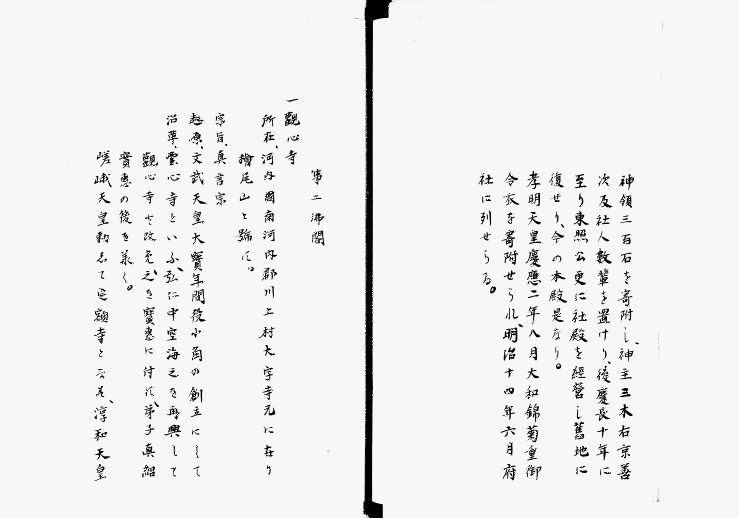 神領三百石を寄附し、神主三木右京善
次及社人數輩を置けり、後慶長十年に
至り東照公更に社殿を經營し舊地に
復せり、今の本殿是なり。
孝明天皇慶應二年八月大和錦菊重御
令衣を寄附せられ、明治十四年六月府
社に列せらる。
第二 佛閣
一觀心寺
所在、河内國南河内郡川上村大字寺元に在り
檜尾山と號す。
宗旨、真言宗
起原、文武天皇大寶年間役小角の創立にして
沿革、雲心寺といふ、弘仁中空海之を再興して
觀心寺と改め之を實惠に付す、弟子真紹
實惠の後を承く。
嵯峨天皇勅して定額寺となす、淳和天皇